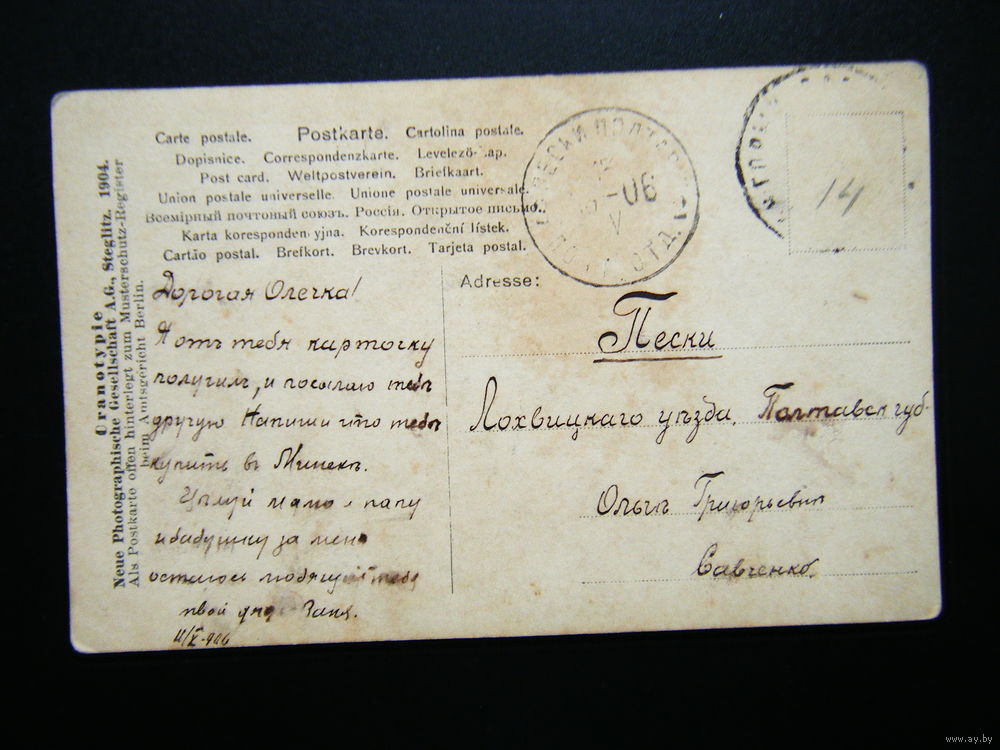 Uranotypie
Neue Photographische Gesellschaft A.G., Steglitz. 1904.
Als Postkarte offen hinterlegt zum Musterschutz-Register
beim Amtsgericht Berlin.
Carte postale. Postkarte. Cartolina postale.
Dopisnice. Correspondenzkarte. Levelező-ap.
Post card. Weltpostverein. Briefkaart.
Union postale universelle. Unione postale universale.
Всемірный почтовый союзъ. Россія. Открытое письмо.
Karta korespondencyjna. Korespondenční lístek.
Cartão postal. Brefkort. Brevkort. Tarjeta postal.
Дорогая Олечка!
Я отъ тебя карточку
получилъ, и посылаю тебѣ
другую Напиши что тебѣ
купить въ Минскѣ.
Цѣлуй маму и папу
и бабушку за меня
остаюсь любящій тебя
твой дядя
11/V-906
Adresse:
Пески
Лохвицкаго уѣзда, Полтавск губ.
Ольгѣ Григорьевнѣ
Савченко.
ПЕСКИ ПОЛТАВ
-06
V
14
www.ay.by